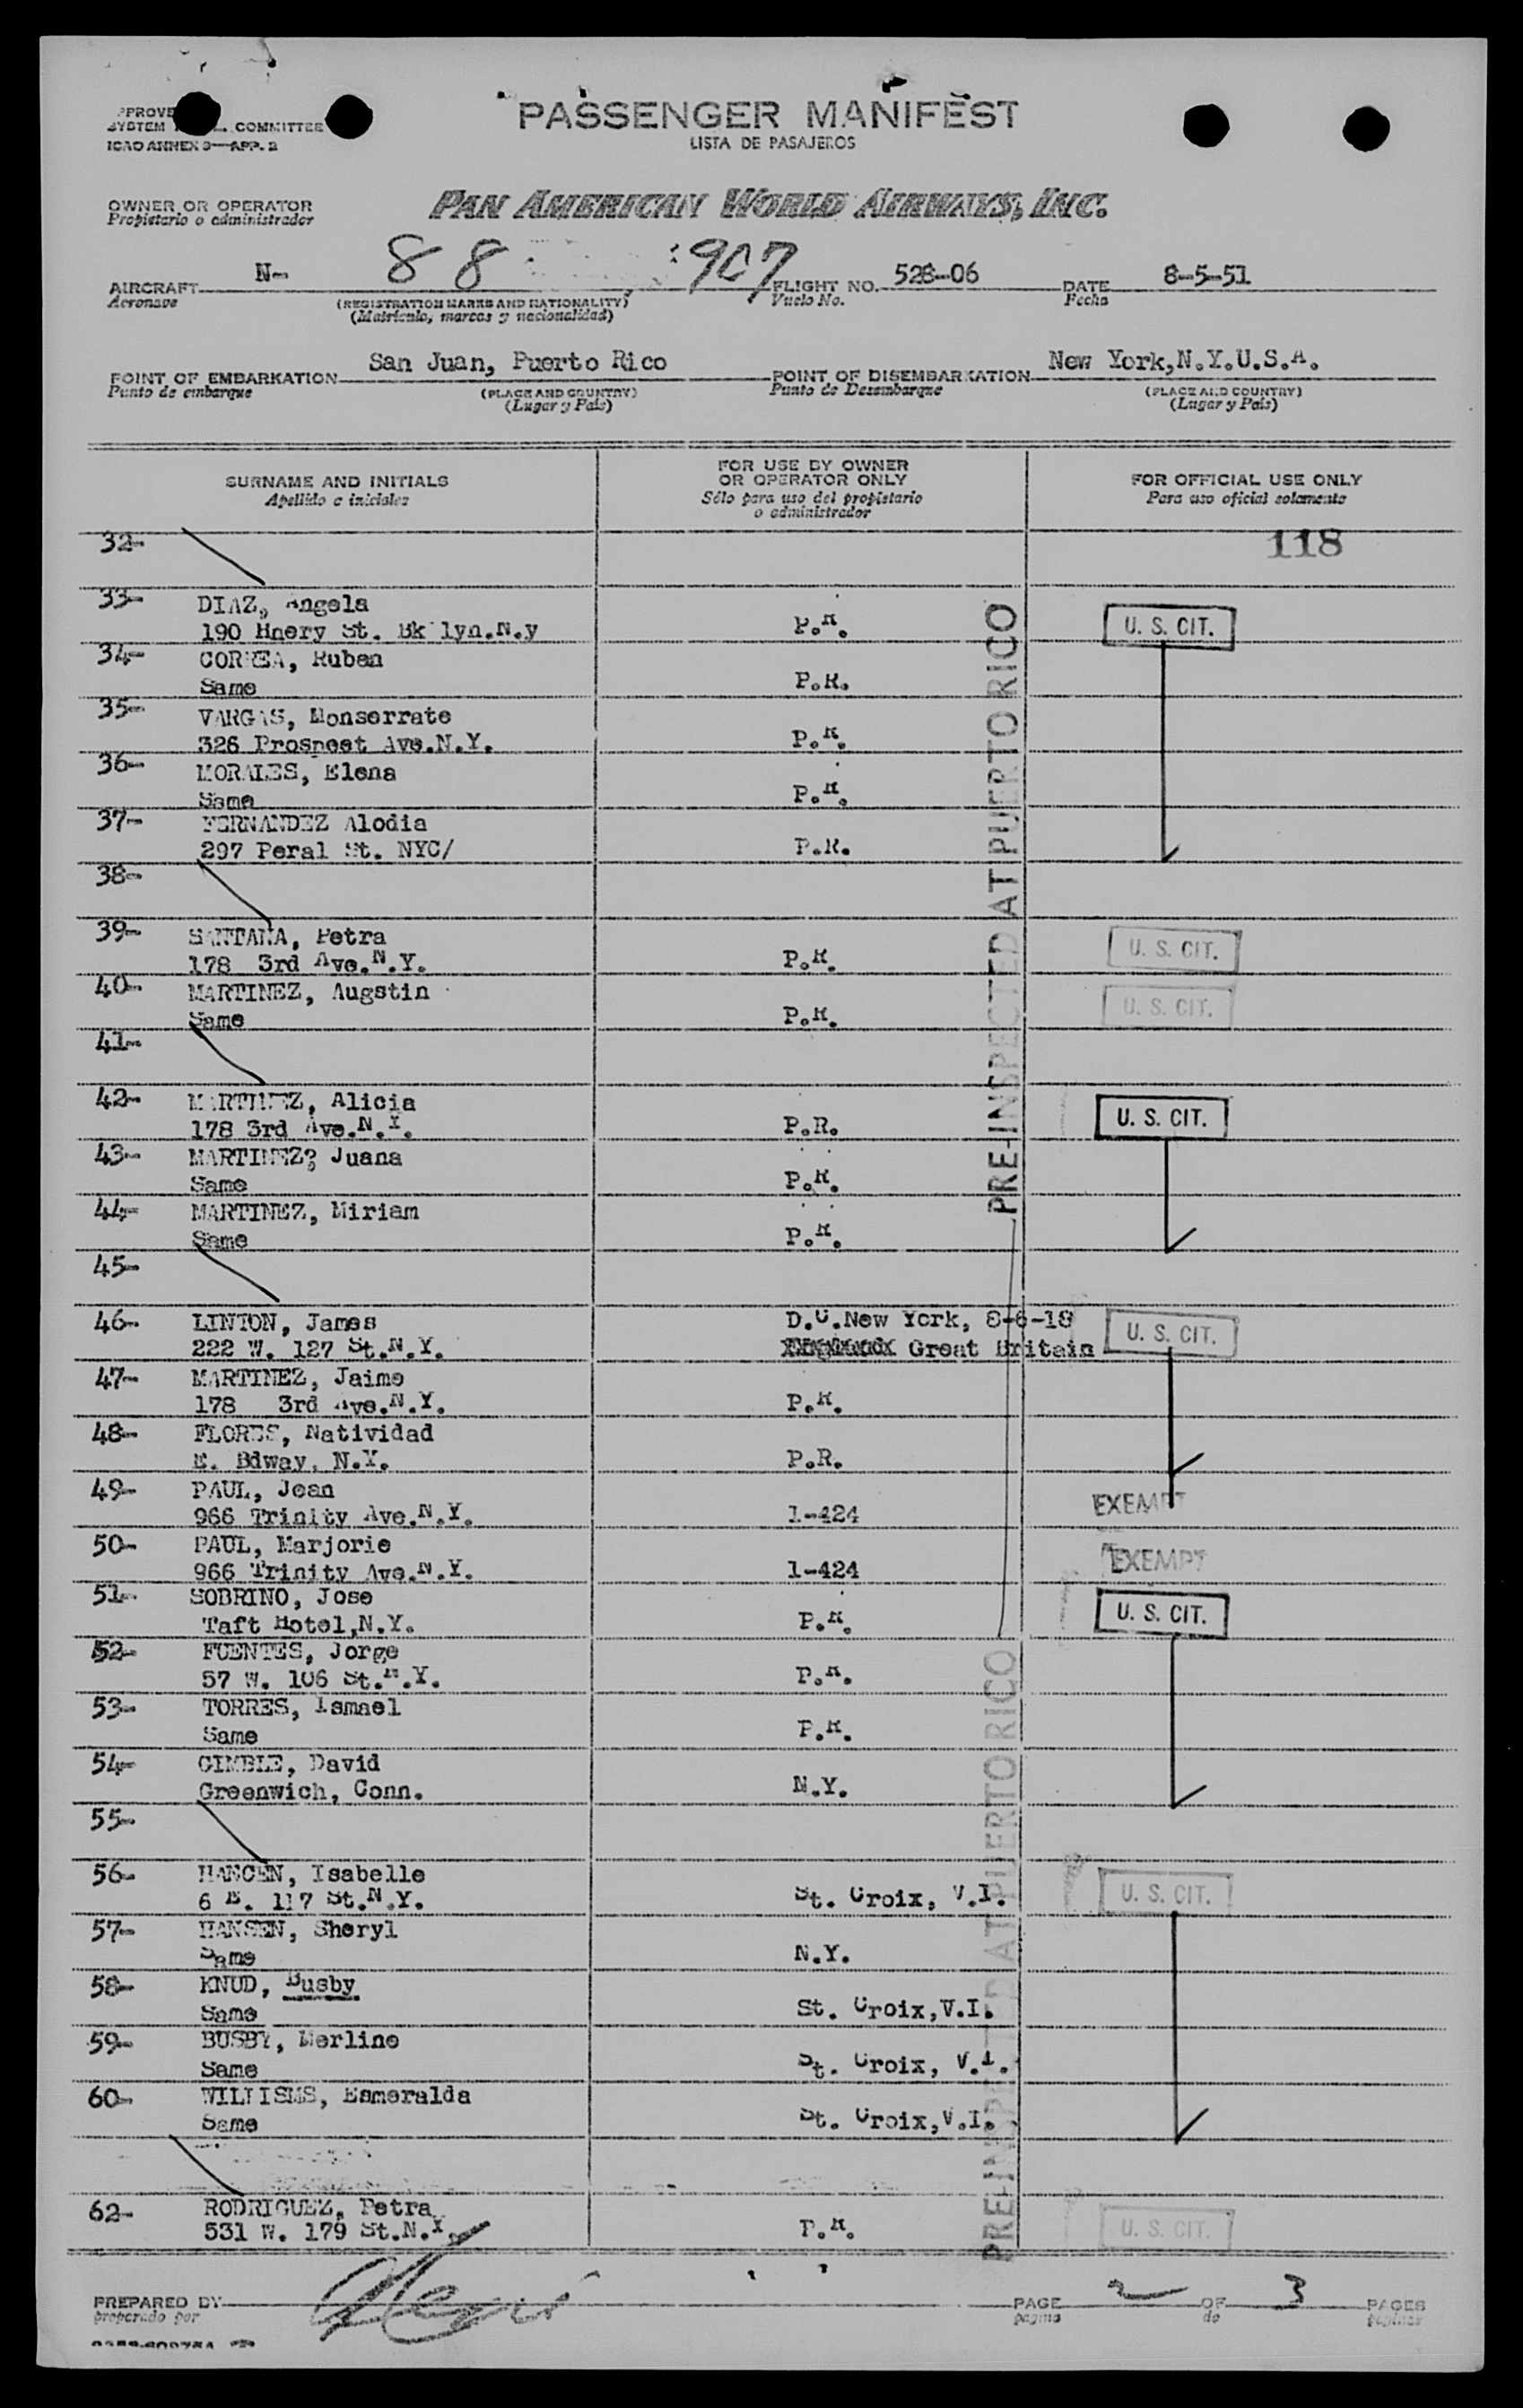 PASSENGER MANIFEST
LISTA DE PASAJEROS
COMMITTEE
ICAO ANNEX 9—APP. 2
OWNER OR OPERATOR
Propietario o administrador
PAN AMERICAN WORLD AIRWAYS, INC.
AIRCRAFT N- 88 907
Aeronave
(REGISTRATION MARKS AND NATIONALITY)
(Matrícula, marcas y nacionalidad)
FLIGHT NO. 528-06
Vuelo No.
DATE 8-5-51
Fecha
POINT OF EMBARKATION San Juan, Puerto Rico
Punto de embarque
(PLACE AND COUNTRY)
(Lugar y País)
POINT OF DISEMBARKATION New York,N.Y.U.S.A.
Punto de Desembarque
(PLACE AND COUNTRY)
(Lugar y País)
SURNAME AND INITIALS
Apellido e iniciales
FOR USE BY OWNER
OR OPERATOR ONLY
Sólo para uso del propietario
o administrador
FOR OFFICIAL USE ONLY
Para uso oficial solamente
32-
118
33- DIAZ, Angela
190 Hnery St. Bk'lyn.N.y P.R. U. S. CIT.
34- CORREA, Ruben
Same P.R.
35- VARGAS, Monserrate
326 Prospect Ave.N.Y. P.R.
36- MORALES, Elena
Same P.R.
37- FERNANDEZ Alodia
297 Peral St. NYC/ P.R.
38-
39- SANTANA, Petra
178 3rd Ave.N.Y. P.R. U. S. CIT.
40- MARTINEZ, Augstin
Same P.R. U. S. CIT.
41-
42- MARTINEZ, Alicia
178 3rd Ave.N.Y. P.R. U. S. CIT.
43- MARTINEZ, Juana
Same P.R.
44- MARTINEZ, Miriam
Same P.R.
45-
PRE-INSPECTED AT PUERTO RICO
46- LINTON, James D.C.New York, 8-6-18
222 W. 127 St.N.Y. Great Britain U. S. CIT.
47- MARTINEZ, Jaime
178 3rd Ave.N.Y. P.R.
48- FLORES, Natividad
E. Bdway, N.Y. P.R.
49- PAUL, Jean
966 Trinity Ave.N.Y. 1-424 EXEMPT
50- PAUL, Marjorie
966 Trinity Ave.N.Y. 1-424 EXEMPT
51- SOBRINO, Jose
Taft Hotel,N.Y. P.R. U. S. CIT.
52- FUENTES, Jorge
57 W. 106 St.N.Y. P.R.
53- TORRES, Ismael
Same P.R.
54- GIMBLE, David
Greenwich, Conn. N.Y.
55-
56- HANCEN, Isabelle
6 E. 117 St.N.Y. St. Croix, V.I. U. S. CIT.
57- HANSEN, Sheryl
Same N.Y.
58- KNUD, Busby
Same St. Croix,V.I.
59- BUSBY, Merline
Same St. Croix, V.I.
60- WILLISMS, Esmeralda
Same St. Croix,V.I.
62- RODRIGUEZ, Petra
531 W. 179 St.N.Y. P.R. U. S. CIT.
PRE-INSPECTED AT PUERTO RICO
PREPARED BY
preparado por
PAGE 2 OF 3 PAGES
página de páginas